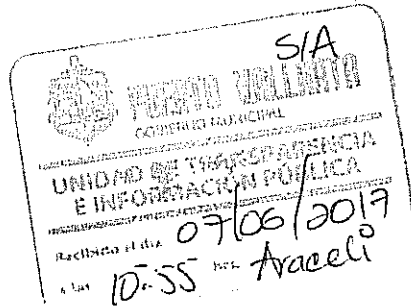 S/A
PUERTO VALLARTA
GOBIERNO MUNICIPAL
UNIDAD DE TRANSPARENCIA
E INFORMACIÓN PÚBLICA
Recibido el día 07/06/2017
a las 10:55 hrs. Araceli